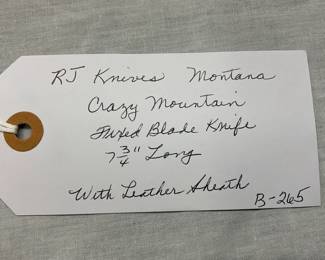 RJ Knives Montana
Crazy Mountain
Fixed Blade Knife
7 3/4" Long
With Leather Sheath
B-265